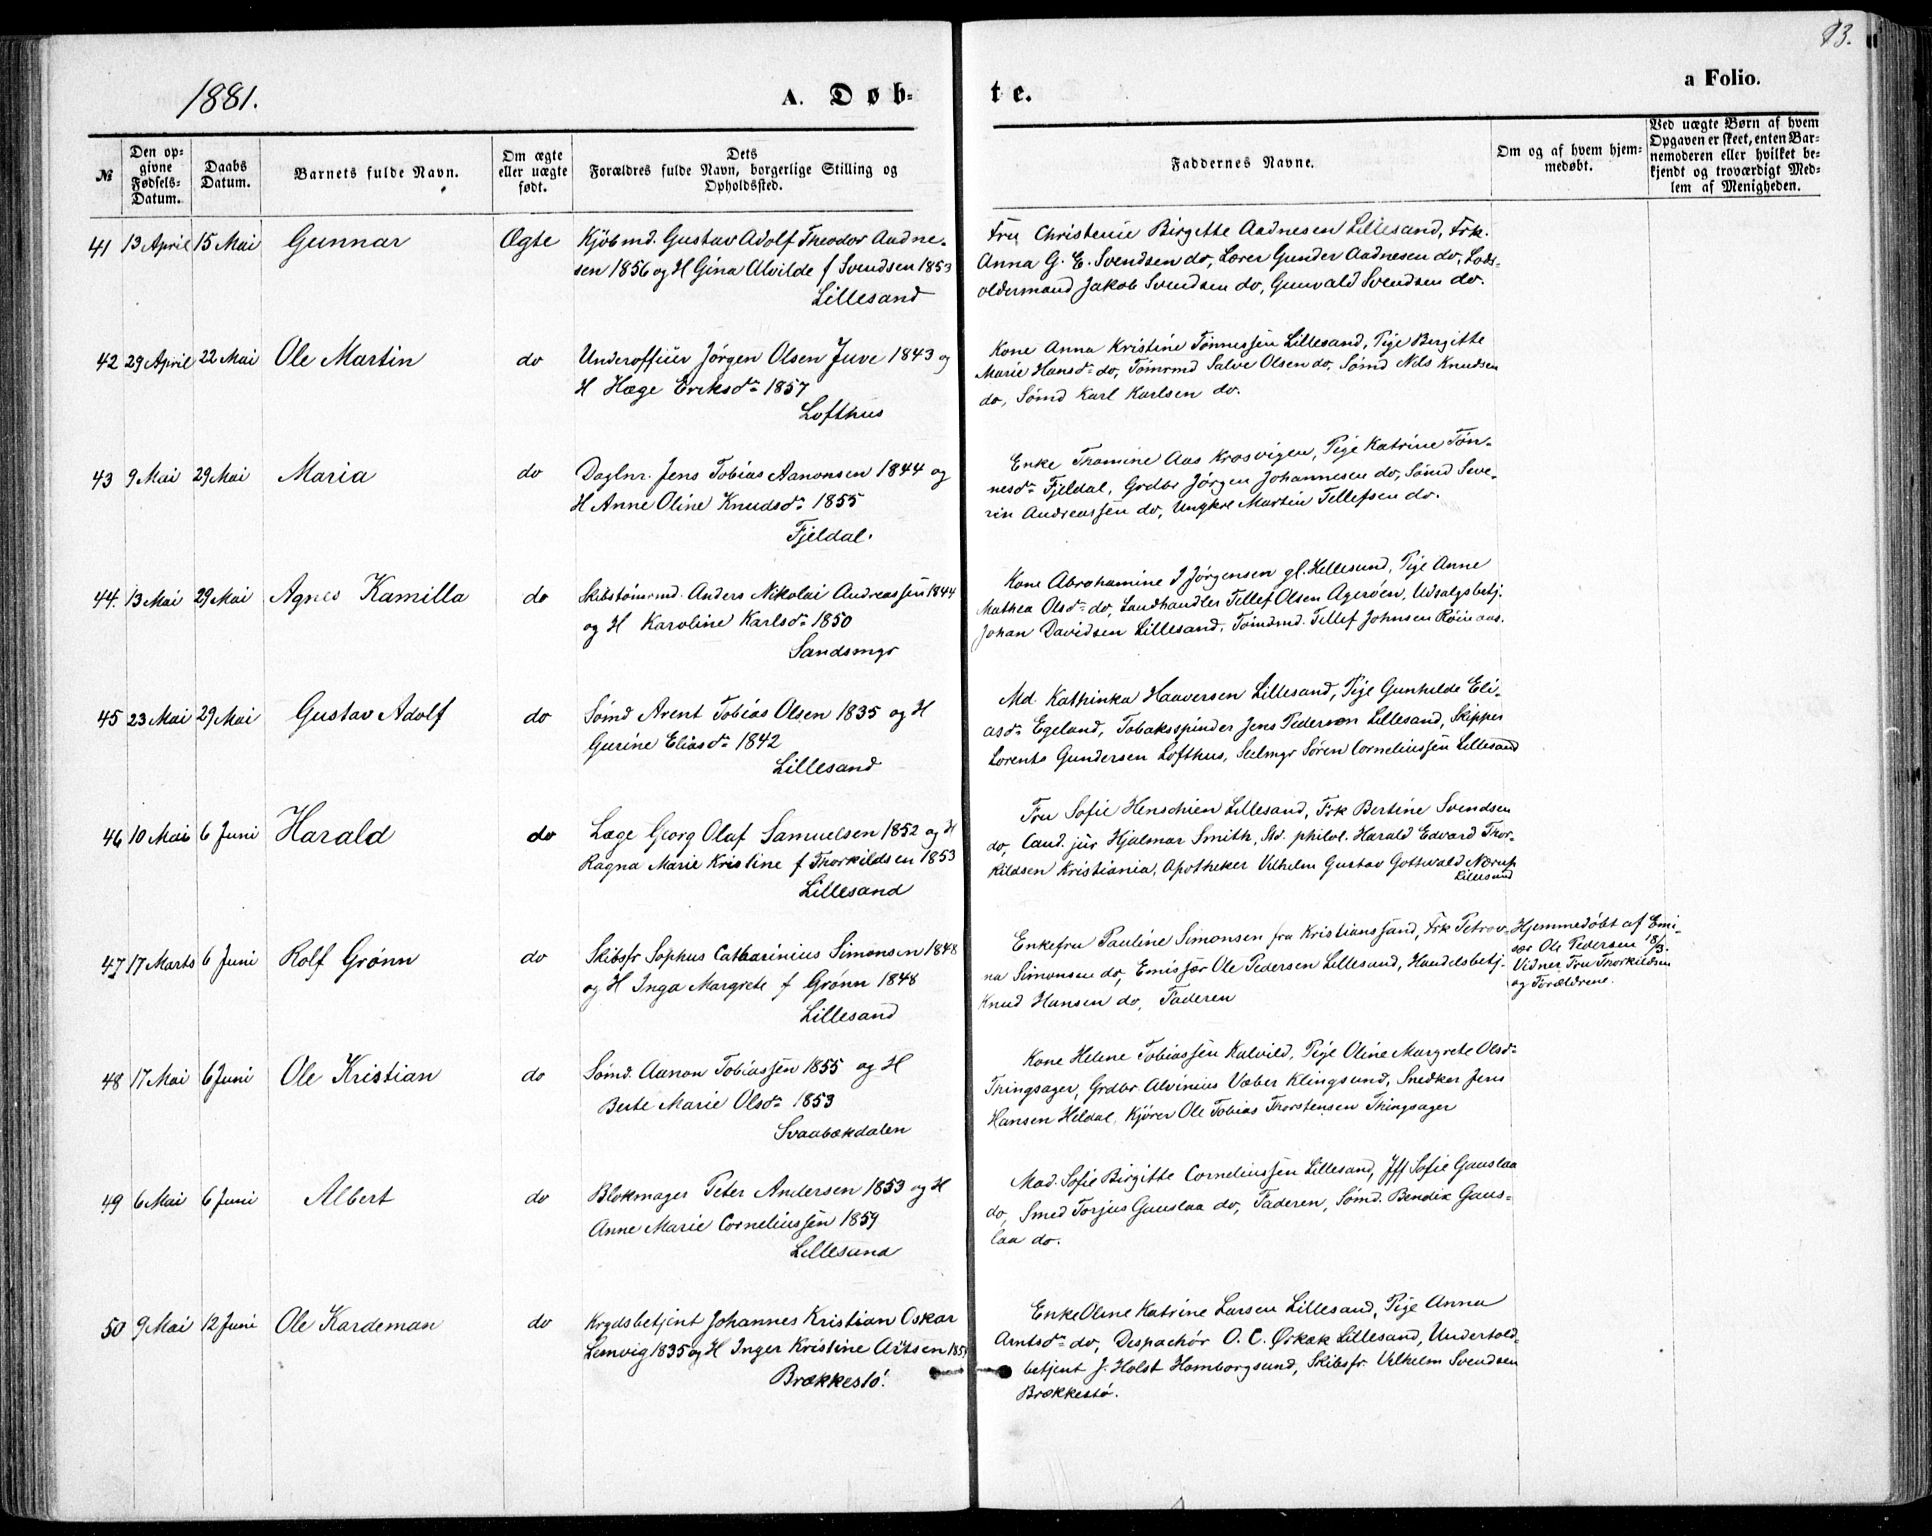 93.
1881.
A. Døb-
te.
a Folio.
№
Den op-
givne
Fødsels-
Datum.
Daabs
Datum.
Barnets fulde Navn.
Om ægte
eller uægte
født.
Dets
Forældres fulde Navn, borgerlige Stilling og
Opholdssted.
Faddernes Navne.
Om og af hvem hjem-
medøbt.
Ved uægte Børn af hvem
Opgaven er skeet, enten Bar-
nemoderen eller hvilket be-
kjendt og troværdigt Med-
lem af Menigheden.
41 13 April 15 Mai Gunnar Ægte
Kjøbmd. Gustav Adolf Theodor Aadne-
sen 1856 og H Gina Alvilde f Svendsen 1853
Lillesand
Fru Christenie Birgitte Aadnesen Lillesand, Frk.
Anna G. E. Svendsen do, Lærer Gunder Aadnesen do, Lods-
oldermand Jakob Svendsen do, Gunvald Svendsen do.
42 29 April 22 Mai Ole Martin do
Underofficer Jørgen Olsen Juve 1843 og
H Hæge Eriksdr 1857
Lofthus
Kone Anna Kristine Tønnessen Lillesand, Pige Birgitte
Marie Hansdr do, Tømrmd Salve Olsen do, Sømd Nils Knudsen
do, Sømd Karl Karlsen do.
43 9 Mai 29 Mai Maria do
Daglnr. Jens Tobias Aanonsen 1844 og
H Anne Oline Knudsdr 1855
Fjeldal.
Enke Thomine Aas Krosvigen, Pige Katrine Tøn-
nesdr Fjeldal, Grdbr Jørgen Johannesen do, Sømd Seve-
rin Andreassen do, Ungkrl Martin Tellefsen do.
44. 13 Mai 29 Mai Agnes Kamilla do
Skibstømrmd. Anders Nikolai Andreassen 1844
og H Karoline Karlsdr 1850
Sandsmyr
Kone Abrahamine J Jørgensen gl. Hellesund, Pige Anne
Mathea Olsdr do, Landhandler Tellef Olsen Agerøen, Udsalgsbetj.
Johan Davidsen Lillesand, Tømdmd. Tellef Johnsen Røinaas.
45 23 Mai 29 Mai Gustav Adolf do
Sømd Arent Tobias Olsen 1835 og H
Gurine Eliasdr 1842
Lillesand
Md Kathinka Haaversen Lillesand, Pige Gunhilde Eli-
asdr Egeland, Tobaksspinder Jens Pedersen Lillesand, Skipper
Lorents Gundersen Lofthus, Seilmgr Søren Corneliussen Lillesand
46 10 Mai 6 Juni Harald do
Læge Georg Olaf Samuelsen 1852 og H
Ragna Marie Kristine f Thorkildsen 1853
Lillesand
Fru Sofie Henschien Lillesand, Frk Bertine Svendsen
do, Cand. jur Hjalmar Smith, Std. philol. Harald Edvard Thor-
kildsen Kristiania, Apotheker Vilhelm Gustav Gottwald Nærup
Lillesand
47 17 Marts 6 Juni Rolf Grønn do
Skibsfr Sophus Catharinius Simonsen 1848
og H Inga Margrete f Grønn 1848
Lillesand
Enkefru Pauline Simonsen fra Kristianssand, Frk Petrov-
na Simonsen do, Emissær Ole Pedersen Lillesand, Handelsbetj.
Knud Hansen do, Faderen
Hjemmedøbt af Emi-
sær Ole Pedersen 18/3.
Vidner Fru Thorkildsen
og Forældrene.
48 17 Mai 6 Juni Ole Kristian do
Sømd. Aanon Tobiassen 1855 og H
Berte Marie Olsdr 1853
Svaabækdalen
Kone Helene Tobiassen Kalvild, Pige Oline Margrete Olsdr
Thingsager, Grdbr. Alvinius Væber Klingsund, Snedker Jens
Hansen Heldal, Kjører Ole Tobias Thorstensen Thingsager
49 6 Mai 6 Juni Albert do
Blokmager Peter Andersen 1853 og H
Anne Marie Corneliussen 1859
Lillesand
Mad. Sofie Birgitte Corneliussen Lillesand, Jff Sofie Gauslaa
do, Smed Torjus Gauslaa do, Faderen, Sømd. Bendik Gaus-
laa do.
50 9 Mai 12 Juni Ole Kardeman do
Krydsbetjent Johannes Kristian Oskar
Lemvig 1835 og H Inger Kristine
Brækkestø.
Enke Oline Katrine Larsen Lillesand, Pige Anna
Arntsdr do, Despachør O. C. Ørbæk Lillesand, Undertold-
betjent J. Holst Homborgsund, Skibsfr Vilhelm Svendsen
Brækkestø.